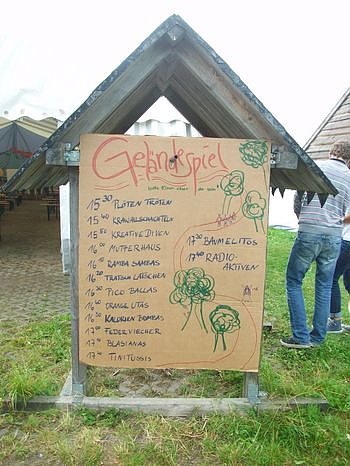 Geländespiel
15³⁰ FLÖTEN TRÖTEN
15⁴⁰ KRAWALLSCHACHTELN
15⁵⁰ KREATIVE DIVEN
16⁰⁰ MUTTERHAUS
16¹⁰ RAMBA SAMBAS
16²⁰ TRATSCH LATSCHEN
16³⁰ PICO BALLAS
16⁴⁰ ORANGE UTAS
16⁵⁰ KALORIEN BOMBAS
17⁰⁰ FEDERVIECHER
17¹⁰ BLASIANAS
17²⁰ TINITUSSIS
17³⁰ BAUMELITOS
17⁴⁰ RADIO-
AKTIVEN